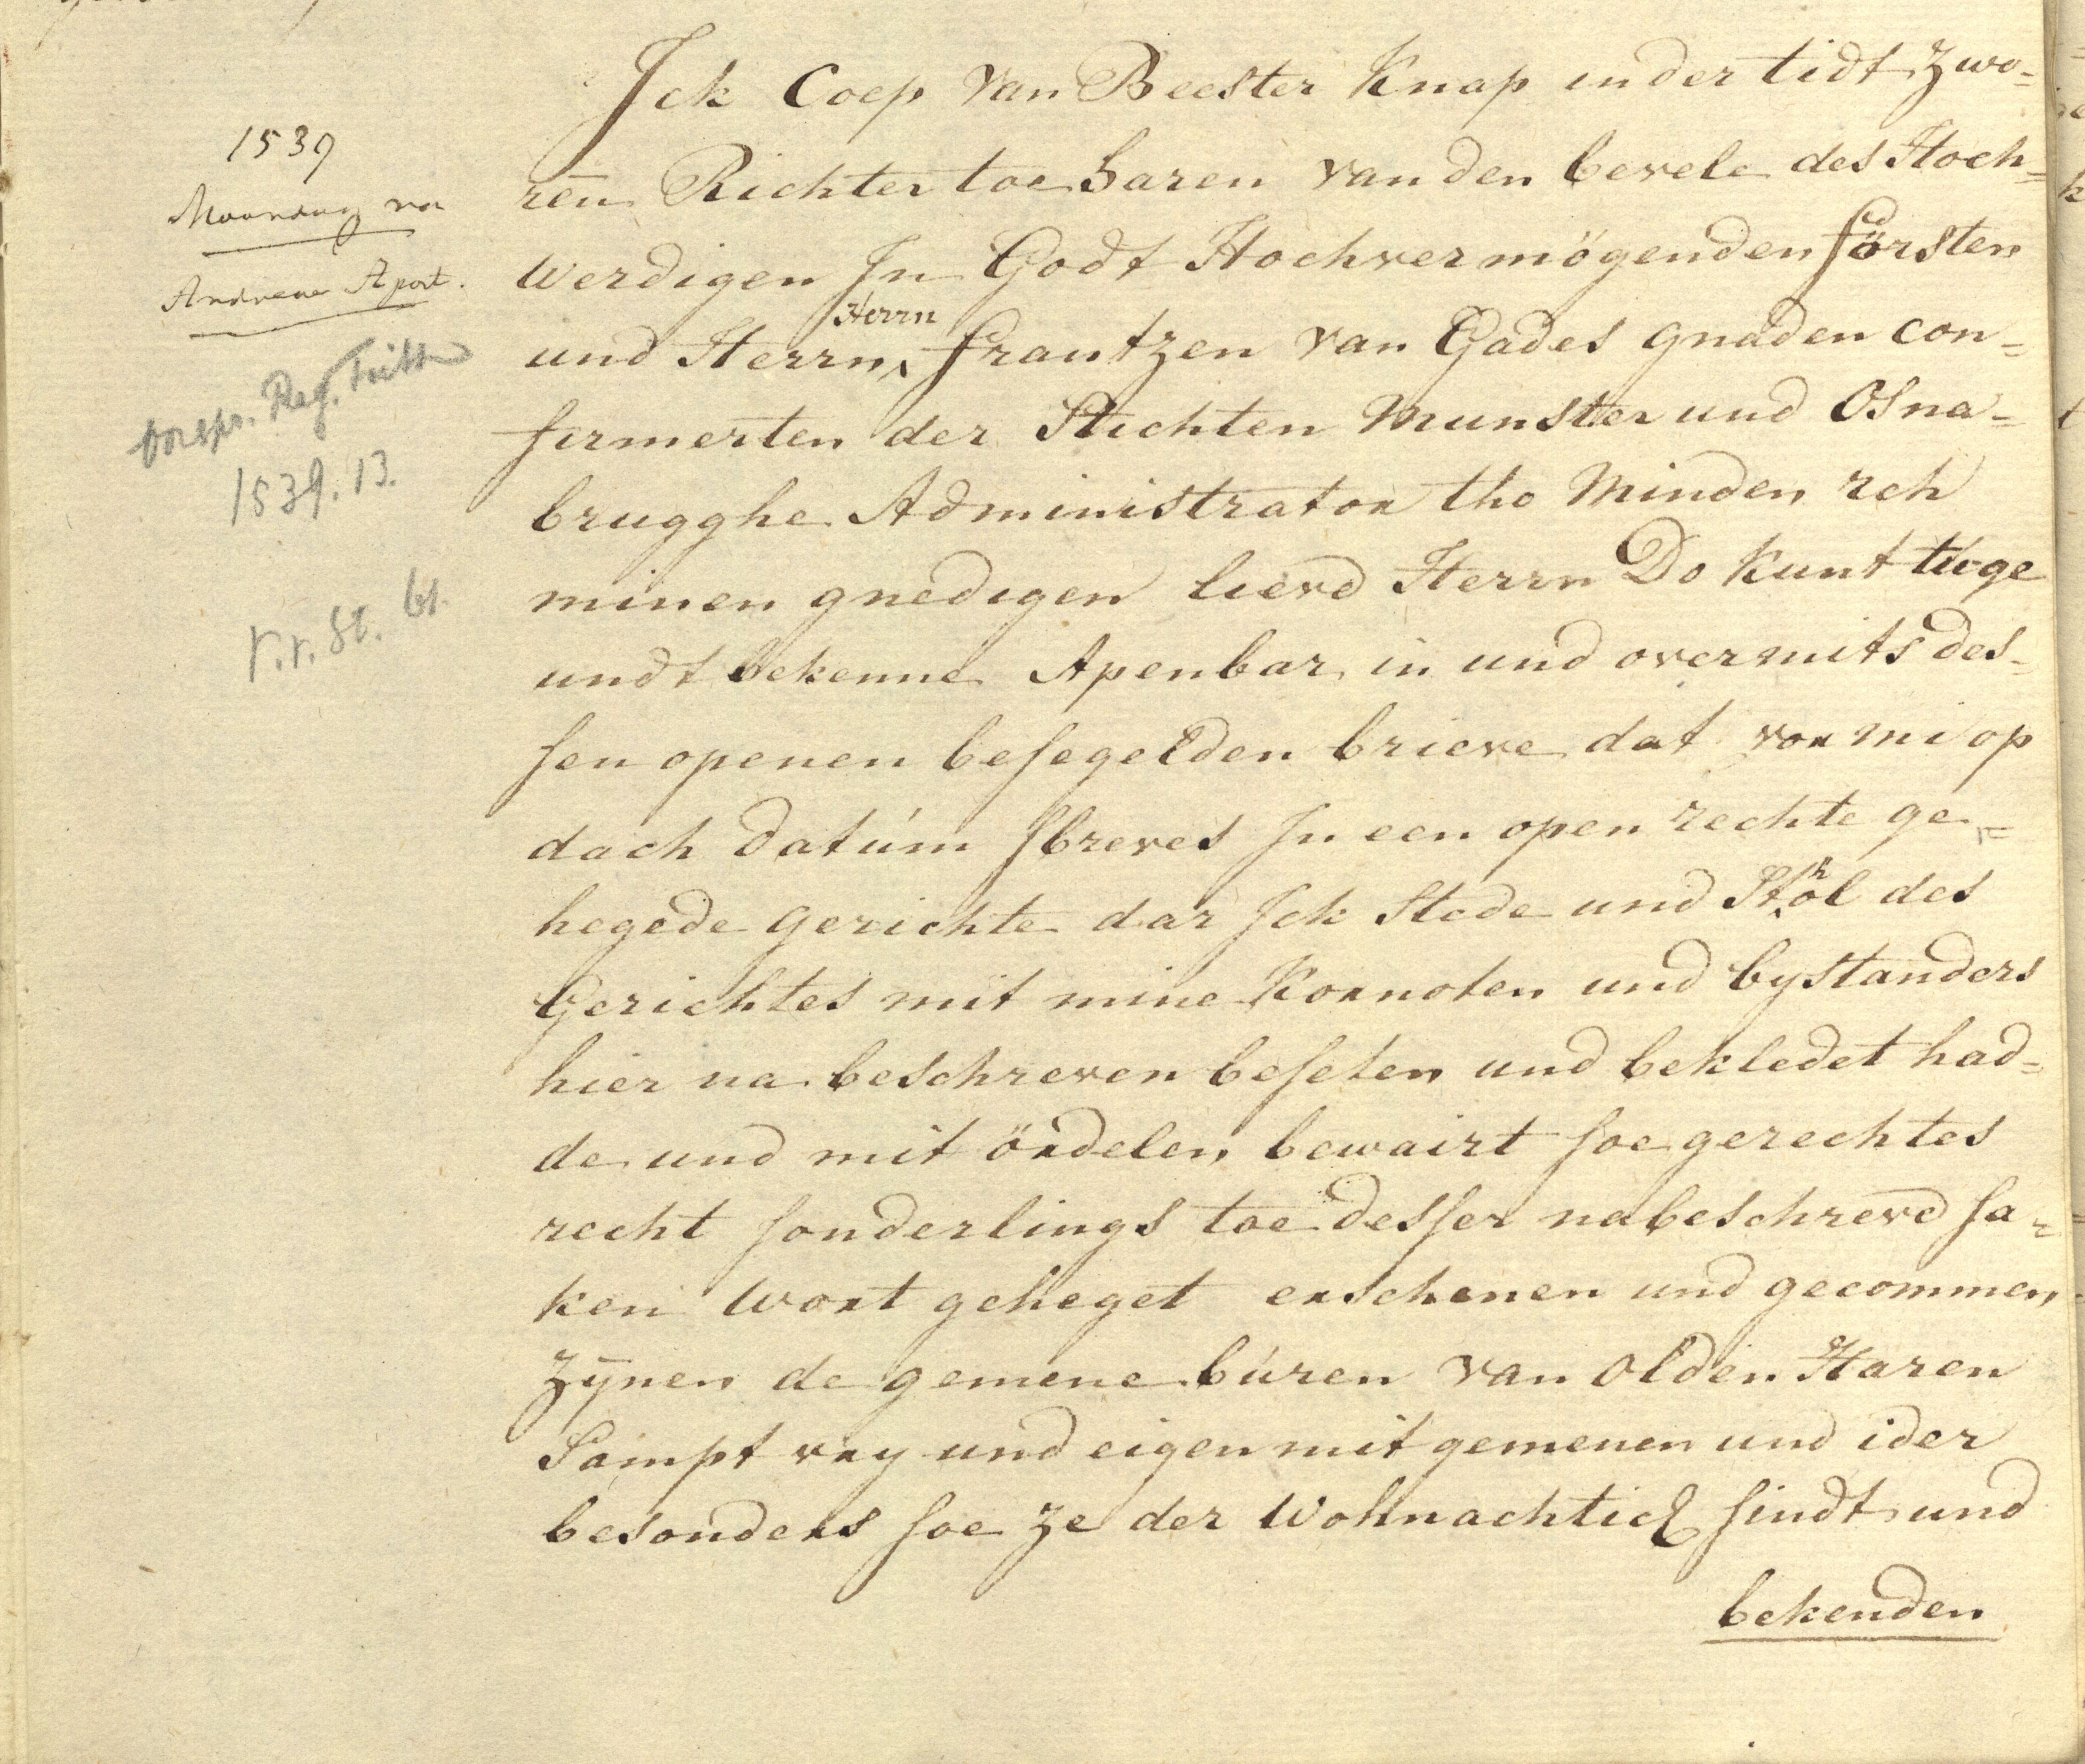 1539
Maandag na
Andreae Apost.
oorspr. Reg.
1539. 13.
r.r. St. bl.
Ick Coep van Beester Knap inder tidt zwo=
ren Richter toe Haren van den bevele des Hoch=
werdigen In Godt Hochvermögenden försten
und Herrn Herrn frantzen van Gades gnaden con=
fermerten der Stichten Munster und Osna=
brugghe Administrator tho Minden rch
minen gnedigen lieve Herrn Do kunt tüge
undt bekenne Apenbar in und overmits des=
sen openen besegelden brieve dat vor mi op
dach datúm sbreves In een open rechte ge=
hegede gerichte dar Ick Stede und Sthol des
Gerichtes mit mine Kornoten und bystanders
hier na beschreven beseten und bekledet had=
de und mit ördelen bewairt soe gerechtes
recht sonderlings toe desser nabeschreve sa=
ken wort geheget erschenen und gecommen
zÿnen de gemene búren van olden Haren
Sampt vry und eigen mit gemenen und ider
besonders soe ze der Wohnachtich sindt und
bekenden